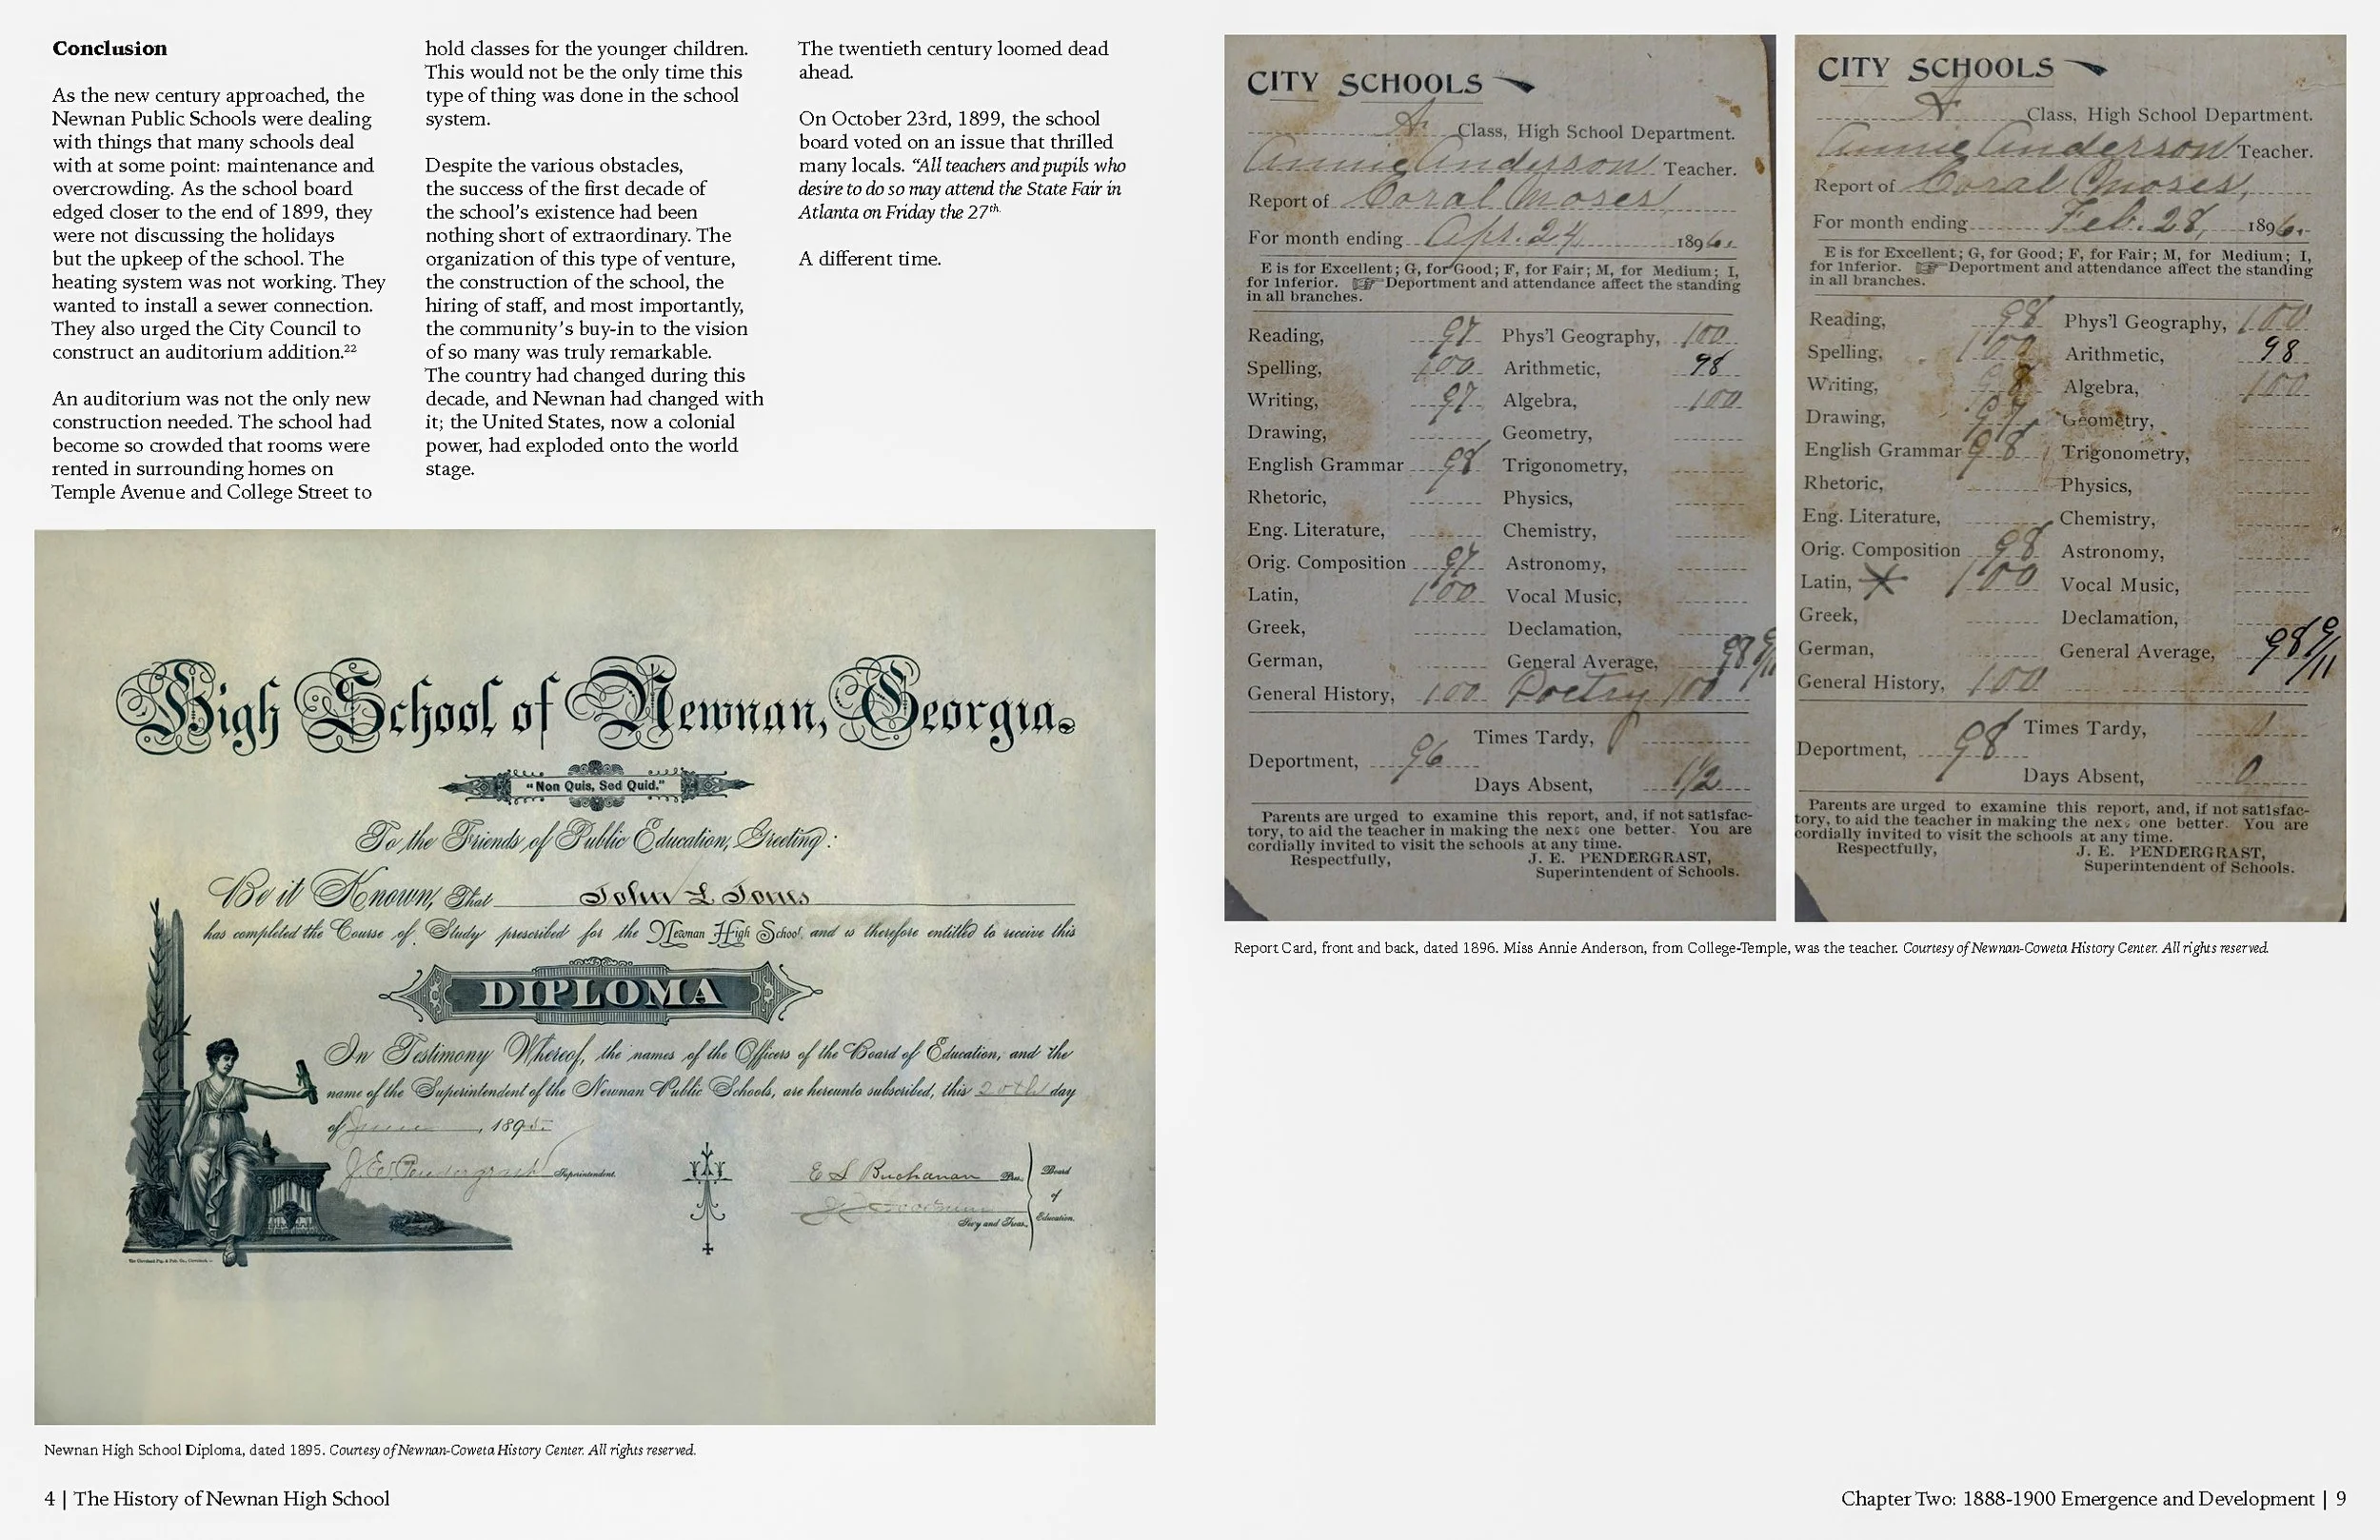 Conclusion
As the new century approached, the
Newnan Public Schools were dealing
with things that many schools deal
with at some point: maintenance and
overcrowding. As the school board
edged closer to the end of 1899, they
were not discussing the holidays
but the upkeep of the school. The
heating system was not working. They
wanted to install a sewer connection.
They also urged the City Council to
construct an auditorium addition.22
An auditorium was not the only new
construction needed. The school had
become so crowded that rooms were
rented in surrounding homes on
Temple Avenue and College Street to
hold classes for the younger children.
This would not be the only time this
type of thing was done in the school
system.
Despite the various obstacles,
the success of the first decade of
the school's existence had been
nothing short of extraordinary. The
organization of this type of venture,
the construction of the school, the
hiring of staff, and most importantly,
the community's buy-in to the vision
of so many was truly remarkable.
The country had changed during this
decade, and Newnan had changed with
it; the United States, now a colonial
power, had exploded onto the world
stage.
The twentieth century loomed dead
ahead.
On October 23rd, 1899, the school
board voted on an issue that thrilled
many locals. “All teachers and pupils who
desire to do so may attend the State Fair in
Atlanta on Friday the 27th.
A different time.
High School of Newnan, Georgia.
"Non Quis, Sed Quid."
To the Friends of Public Education, Greeting:
Be it Known, That John L Jones
has completed the Course of Study prescribed for the Newnan High School, and is therefore entitled to receive this
DIPLOMA
In Testimony Whereof, the names of the Officers of the Board of Education, and the
name of the Superintendent of the Newnan Public Schools, are hereunto subscribed, this 20th day
of June, 1895
J. E. Pendergrast Superintendent.
E S Buchanan Pres.
Sec'y and Treas.
Board
of
Education.
Newnan High School Diploma, dated 1895. Courtesy of Newnan-Coweta History Center. All rights reserved.
4 | The History of Newnan High School
CITY SCHOOLS
A Class, High School Department.
Annie Anderson Teacher.
Report of Coral Moses,
For month ending Apr. 24, 1896.
E is for Excellent; G, for Good; F, for Fair; M, for Medium; I,
for Inferior. ☞ Deportment and attendance affect the standing
in all branches.
Reading, 97 Phys'l Geography, 100
Spelling, 100 Arithmetic, 98
Writing, 97 Algebra, 100
Drawing, Geometry,
English Grammar 98 Trigonometry,
Rhetoric, Physics,
Eng. Literature, Chemistry,
Orig. Composition 97 Astronomy,
Latin, 100 Vocal Music,
Greek, Declamation,
German, General Average, 98 9/11
General History, 100 Poetry 100
Times Tardy, 0
Deportment, 96
Days Absent, 1/2
Parents are urged to examine this report, and, if not satisfac-
tory, to aid the teacher in making the next one better. You are
cordially invited to visit the schools at any time.
Respectfully, J. E. PENDERGRAST,
Superintendent of Schools.
CITY SCHOOLS
A Class, High School Department.
Annie Anderson Teacher.
Report of Coral Moses,
For month ending Feb. 28, 1896.
E is for Excellent; G, for Good; F, for Fair; M, for Medium; I,
for Inferior. ☞ Deportment and attendance affect the standing
in all branches.
Reading, 98 Phys'l Geography, 100
Spelling, 100 Arithmetic, 98
Writing, 98 Algebra, 100
Drawing, 97 Geometry,
English Grammar 98 Trigonometry,
Rhetoric, Physics,
Eng. Literature, Chemistry,
Orig. Composition 98 Astronomy,
Latin, 100 Vocal Music,
Greek, Declamation,
German, General Average, 98 9/11
General History, 100
Times Tardy, 0
Deportment, 98
Days Absent, 0
Parents are urged to examine this report, and, if not satisfac-
tory, to aid the teacher in making the next one better. You are
cordially invited to visit the schools at any time.
Respectfully, J. E. PENDERGRAST,
Superintendent of Schools.
Report Card, front and back, dated 1896. Miss Annie Anderson, from College-Temple, was the teacher. Courtesy of Newnan-Coweta History Center. All rights reserved.
Chapter Two: 1888-1900 Emergence and Development | 9